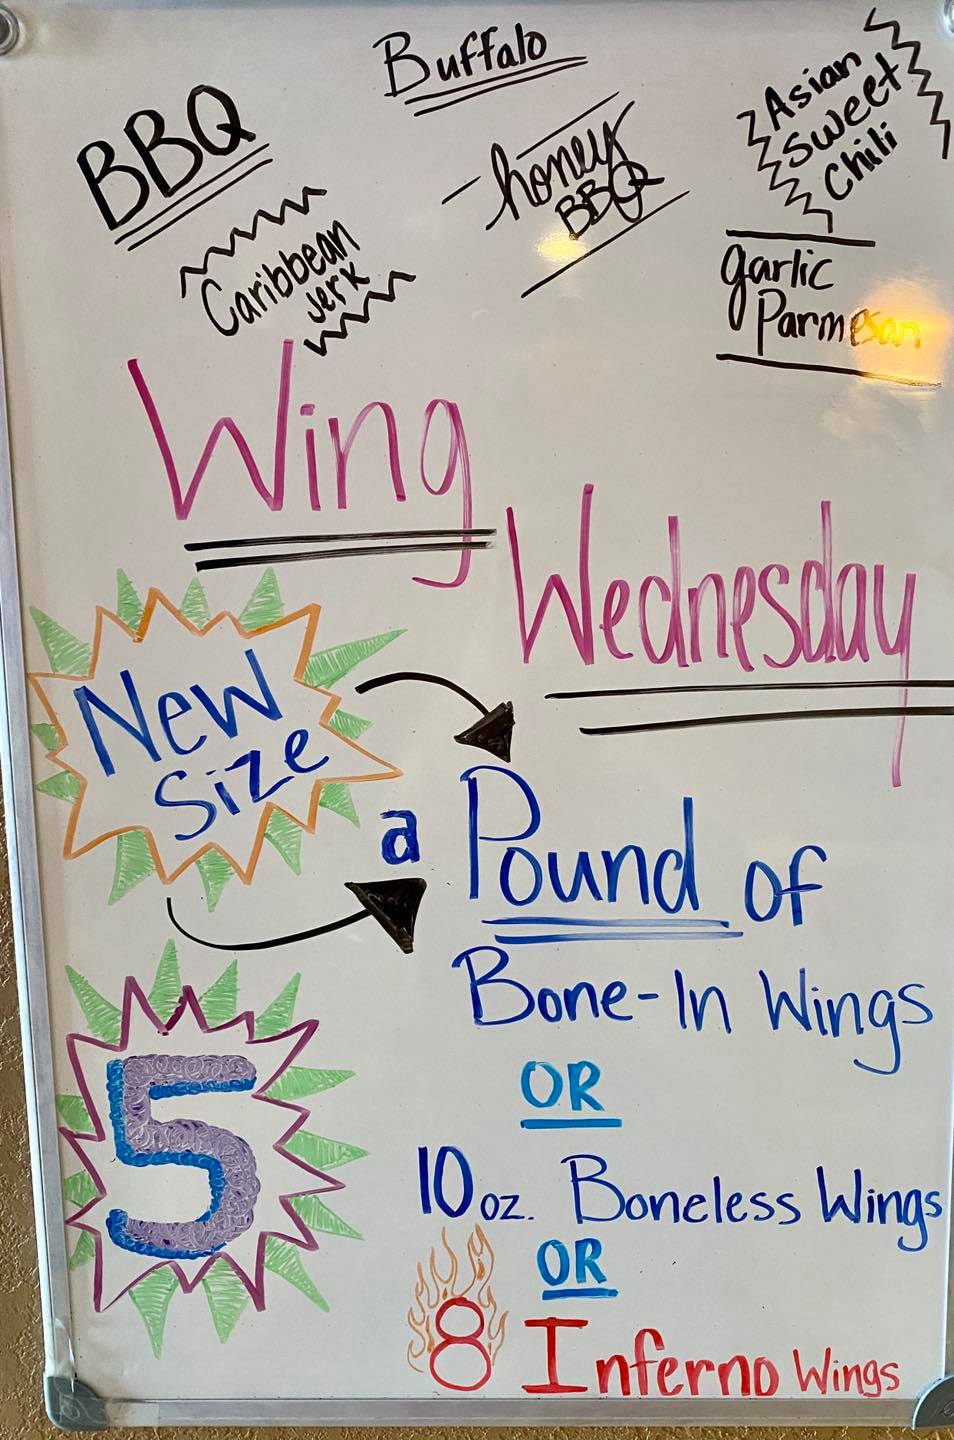 Buffalo
BBQ
honey
BBQ
Asian
Sweet
Chili
Caribbean
Jerk
garlic
Parmesan
Wing
Wednesday
New
Size
a Pound of
Bone-In Wings
OR
5
10 oz. Boneless Wings
OR
8 Inferno Wings